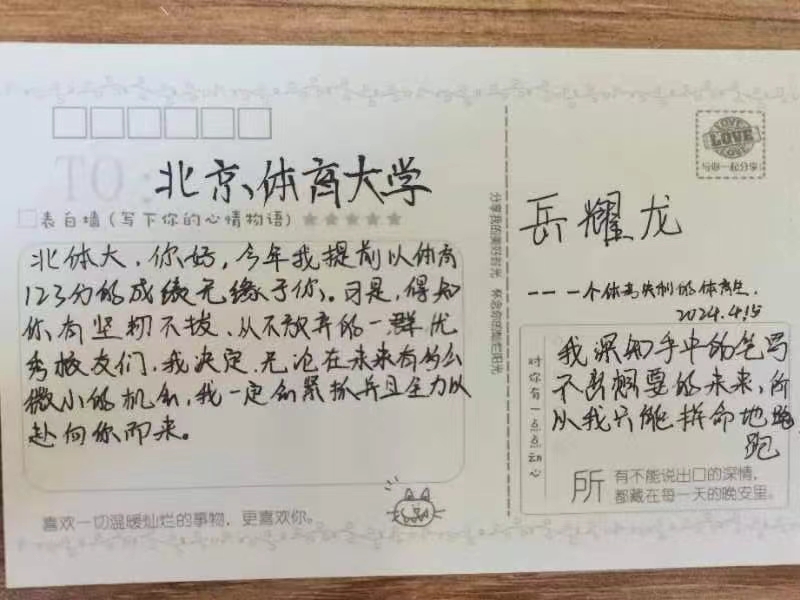 TO:
北京体育大学
表白墙(写下你的心情物语)★★★★★
北体大,你好,今年我提前以体育
123分的成绩无缘于你。可是,得知
你有坚韧不拔、从不放弃的一群优
秀校友们,我决定,无论在未来有多么
微小的机会,我一定会紧抓并且全力以
赴向你而来。
喜欢一切温暖灿烂的事物,更喜欢你。
分享我的美好时光 怀念你的灿烂阳光
LOVE
与你一起分享
岳耀龙
---一个体高失利的体育生
2024.4.15
对你有一点点动心
我深知手中的笔写
不出想要的未来,所
以我只能拼命地跑
跑
所
有不能说出口的深情,
都藏在每一天的晚安里。